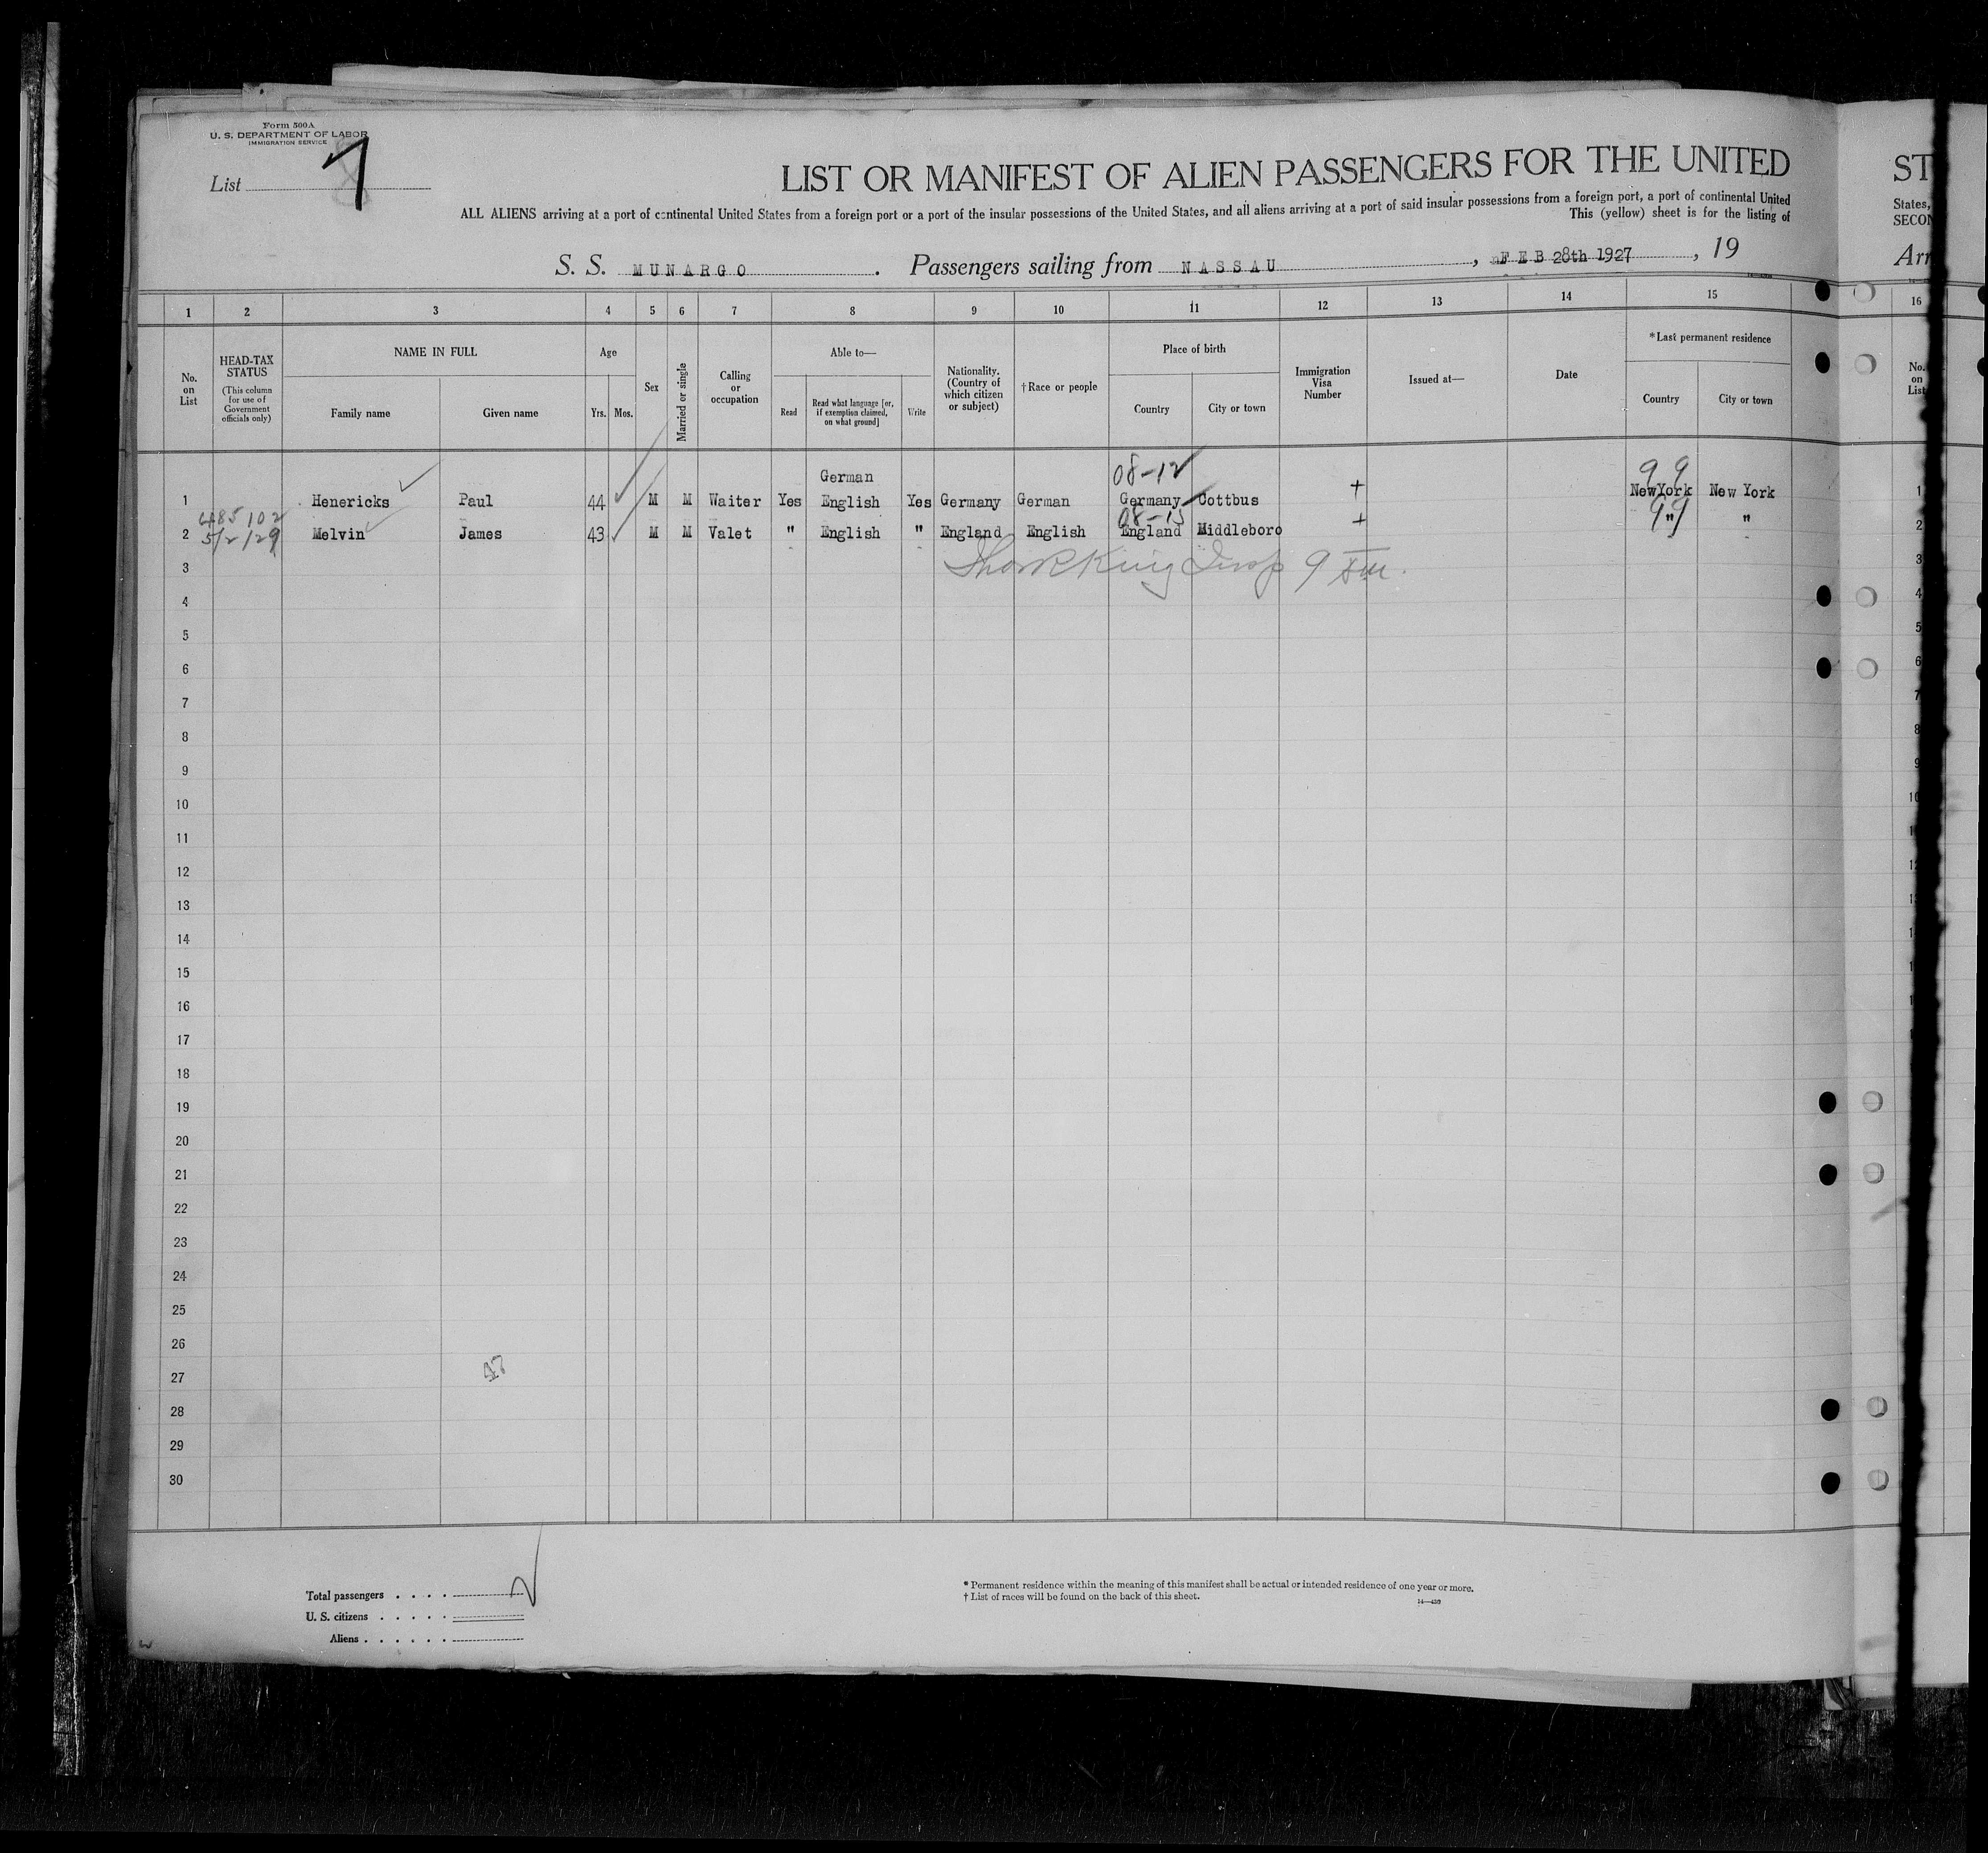 Form 500A
U. S. DEPARTMENT OF LABOR
IMMIGRATION SERVICE
List 7
LIST OR MANIFEST OF ALIEN PASSENGERS FOR THE UNITED ST
ALL ALIENS arriving at a port of continental United States from a foreign port or a port of the insular possessions of the United States, and all aliens arriving at a port of said insular possessions from a foreign port, a port of continental United States,
This (yellow) sheet is for the listing of SECON
S. S. MUNARGO. Passengers sailing from NASSAU, FEB 28th 1927, 19 Arr
1 2 3 4 5 6 7 8 9 10 11 12 13 14 15 16
No. on List
HEAD-TAX STATUS
(This column for use of Government officials only)
NAME IN FULL
Family name Given name
Age
Yrs. Mos.
Sex
Married or single
Calling or occupation
Able to—
Read Read what language [or, if exemption claimed, on what ground] Write
Nationality. (Country of which citizen or subject)
†Race or people
Place of birth
Country City or town
Immigration Visa Number
Issued at—
Date
*Last permanent residence
Country City or town
No. on List
German 08-12 9 9
1 Henericks Paul 44 M M Waiter Yes English Yes Germany German Germany Cottbus + NewYork New York 1
485102 08-15 99
2 5/2/29 Melvin James 43 M M Valet " English " England English England Middleboro + " " 2
3 King Insp 3
4 4
5 5
6 6
7 7
8 8
9 9
10 10
11 1
12 12
13 13
14 1
15 1
16 1
17 1
18
19
20
21
22
23
24
25
26
27
28
29
30
47
Total passengers . . . .
U. S. citizens . . . . .
Aliens . . . . . .
* Permanent residence within the meaning of this manifest shall be actual or intended residence of one year or more.
† List of races will be found on the back of this sheet.
14—439